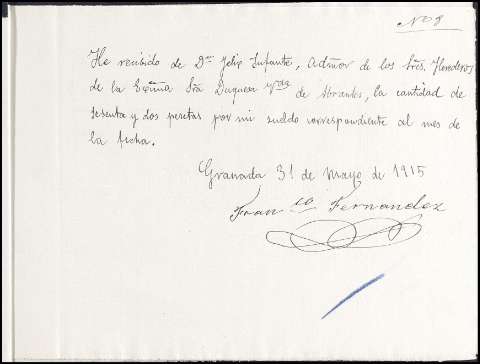 Nº 8
He recibido de Dn. Felix Infante, Admor de los Sres. Herederos
de la Excma Sra Duquesa Vda de Abrantes, la cantidad de
sesenta y dos pesetas por mi sueldo correspondiente al mes de
la fecha.
Granada 31 de Mayo de 1915
Franco Fernandez